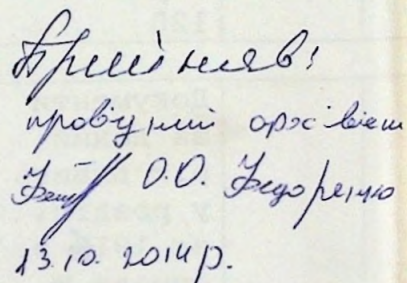 Прийняв:
провідний архівіст
О.О. Федоренко
13.10.2014 р.